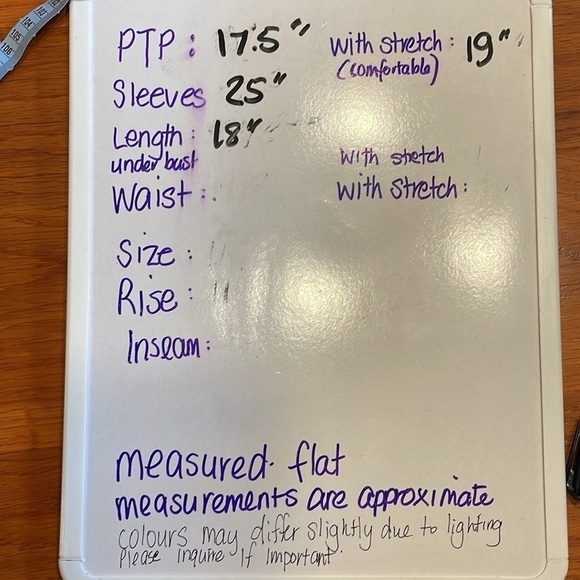 PTP : 17.5" with stretch : 19"
(comfortable)
Sleeves 25"
Length : 18"
under bust with stretch
Waist : with stretch :
Size :
Rise :
Inseam :
measured. flat
measurements are approximate
colours may differ slightly due to lighting
Please inquire if important.